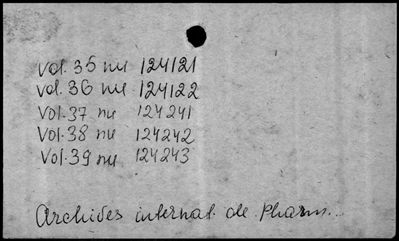 Vol. 35 nu 124121
Vol. 36 nu 124122
Vol. 37 nu 124241
Vol. 38 nu 124242
Vol. 39 nu 124243
Archives internat. de Pharm...